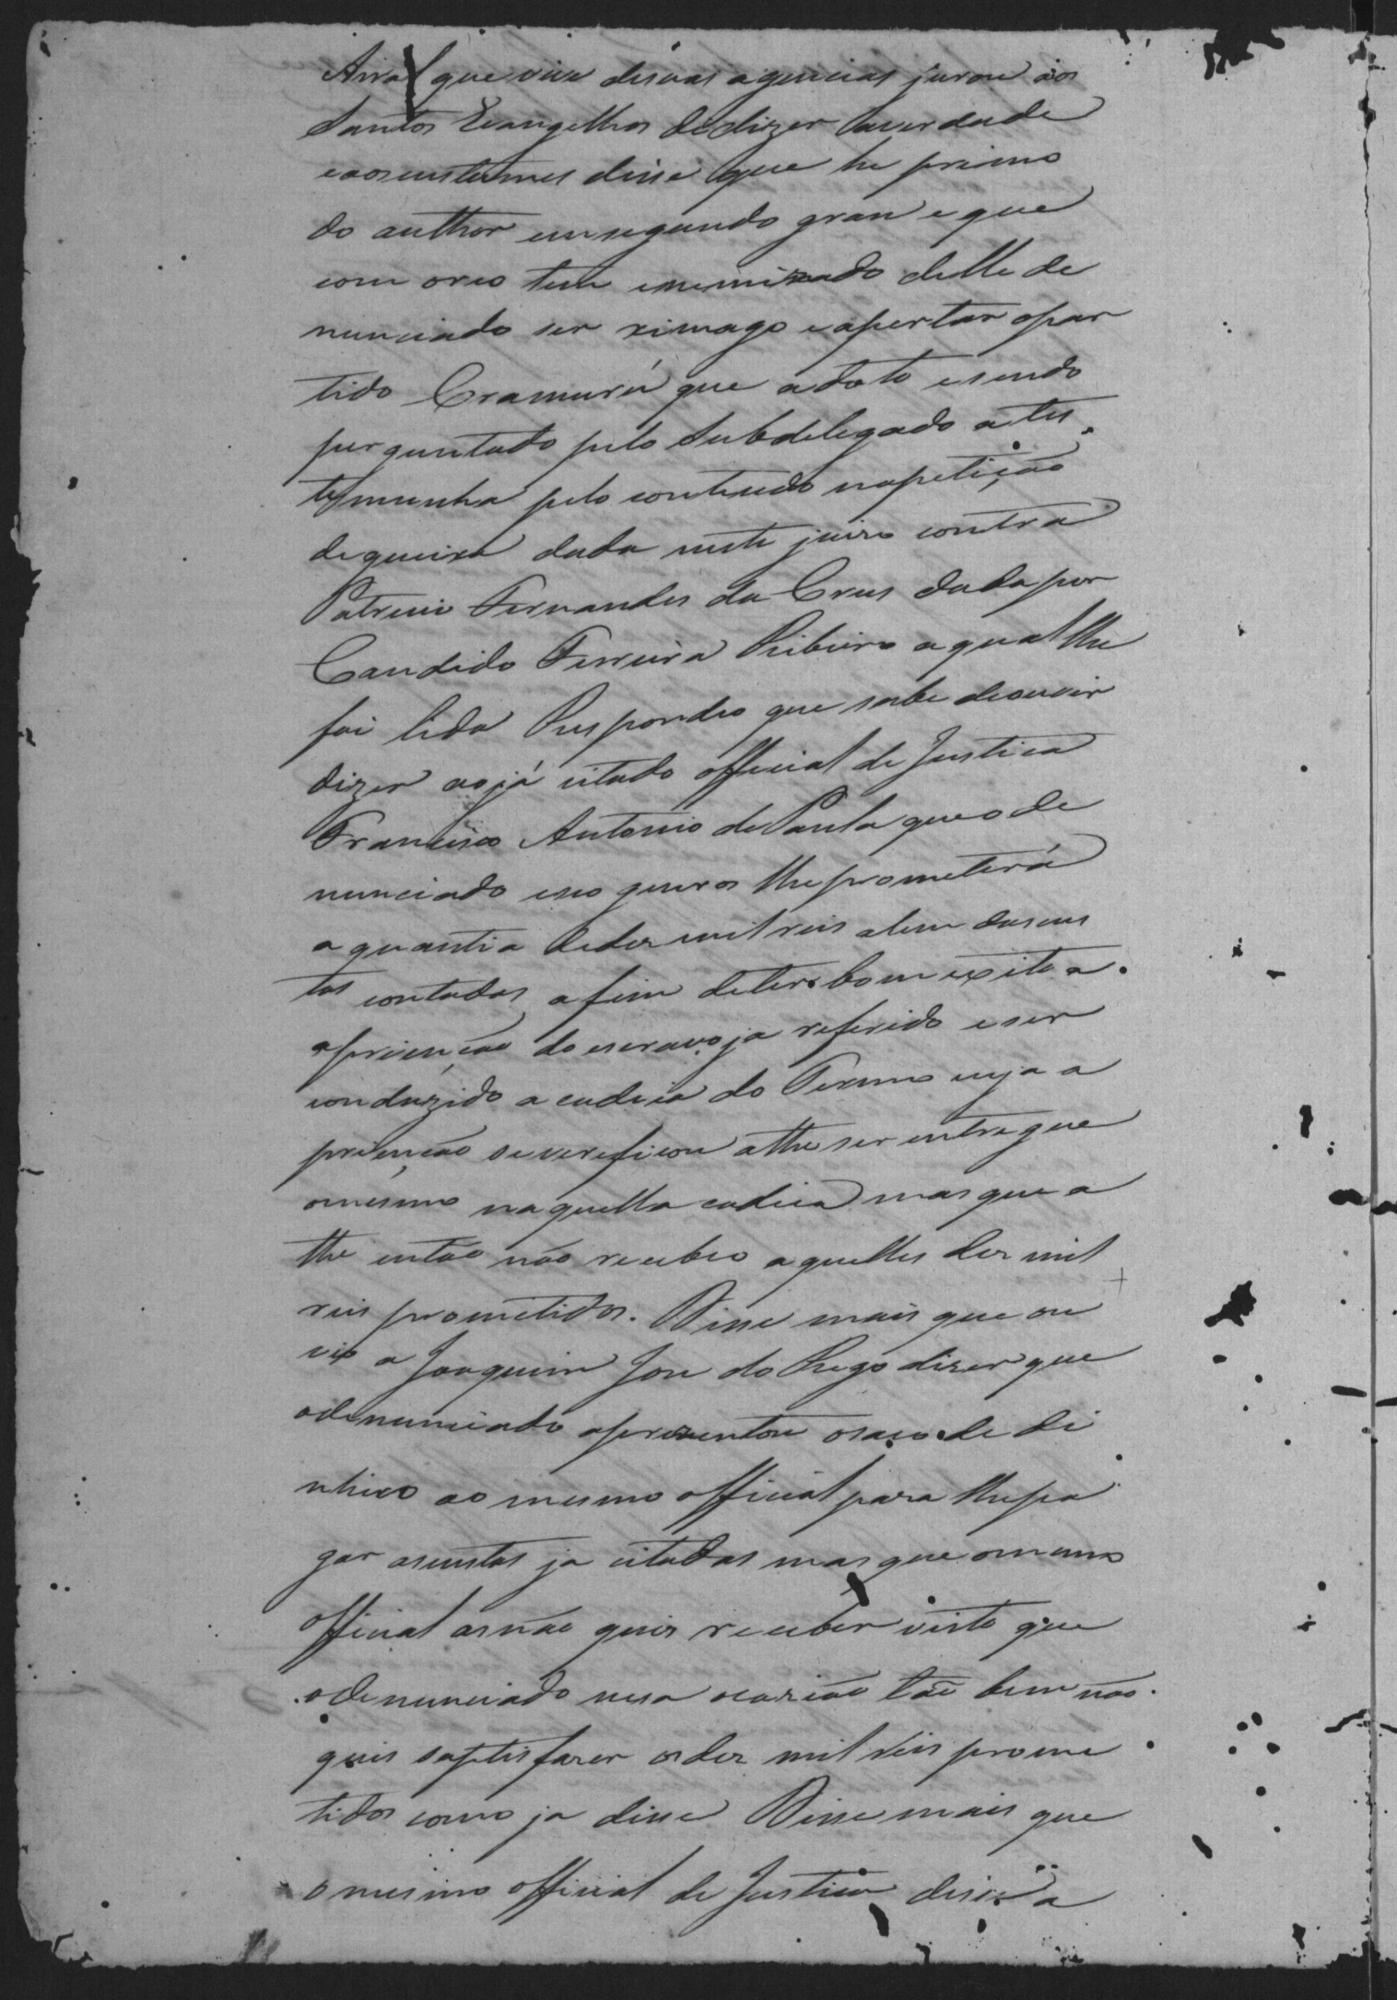 Arraal que vive desuas agencias jurou aos
Santos Evangelhos dedizer averdade
eaoscustumes disse que he primo
do author emsegundo grau e que
com oreo tem enemizado delle de
nunciado ser ximago eapertar opar
tido Cramurú que adoto esendo
perguntado pelo Subdelegado ates
temunha pelo conteudo napetição
dequeixa dada neste juizo contra
Patricio Fernandes da Crus dada por
Candido Ferreira Ribeiro aqual lhe
foi lida Respondeo que sabe deouvir
dizer aojá citado official de Justica
Francisco Antonio de Paula que o de
nunciado eseo genros lheprometerá
aquantia dedez mil reis alem dascus
tas contadas afim deter bom exito a
aprienção doescravo ja referido eser
conduzido acadeia do Termo cuja a
prienção severeficou athe ser entregue
omesmo naquella cadeia mas que a
the então não recebeo aquelles dez mil
reis prometidos. Disse mais que ou
vio a Joaquim Jose do Rego dizer que
odenunciado aprezentou osaco de di
nheiro ao mesmo official para lhepa
gar ascustas ja citadas mas que omesmo
official asnão quis receber visto que
odenunciado nesa ocazião tão bem não
quis saptisfazer osdez mil reis prome
tidos como ja disse Disse mais que
omesmo official de Justica dissera